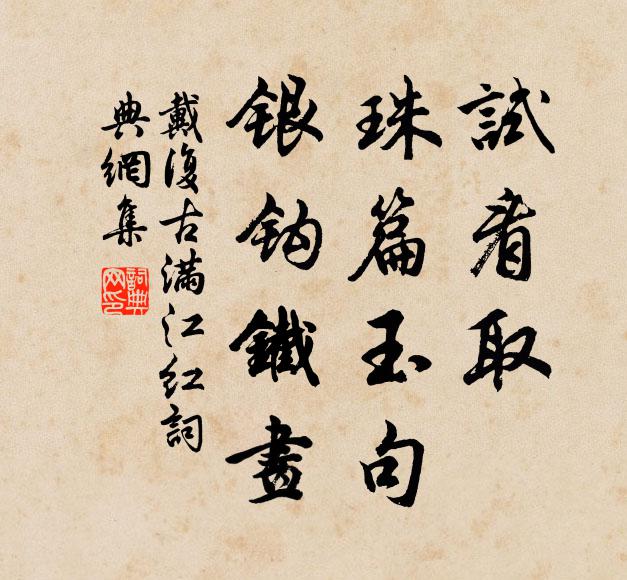 試看取
珠篇玉句
銀鈎鐵畫
戴復古滿江紅詞
典網集
詞典
网印